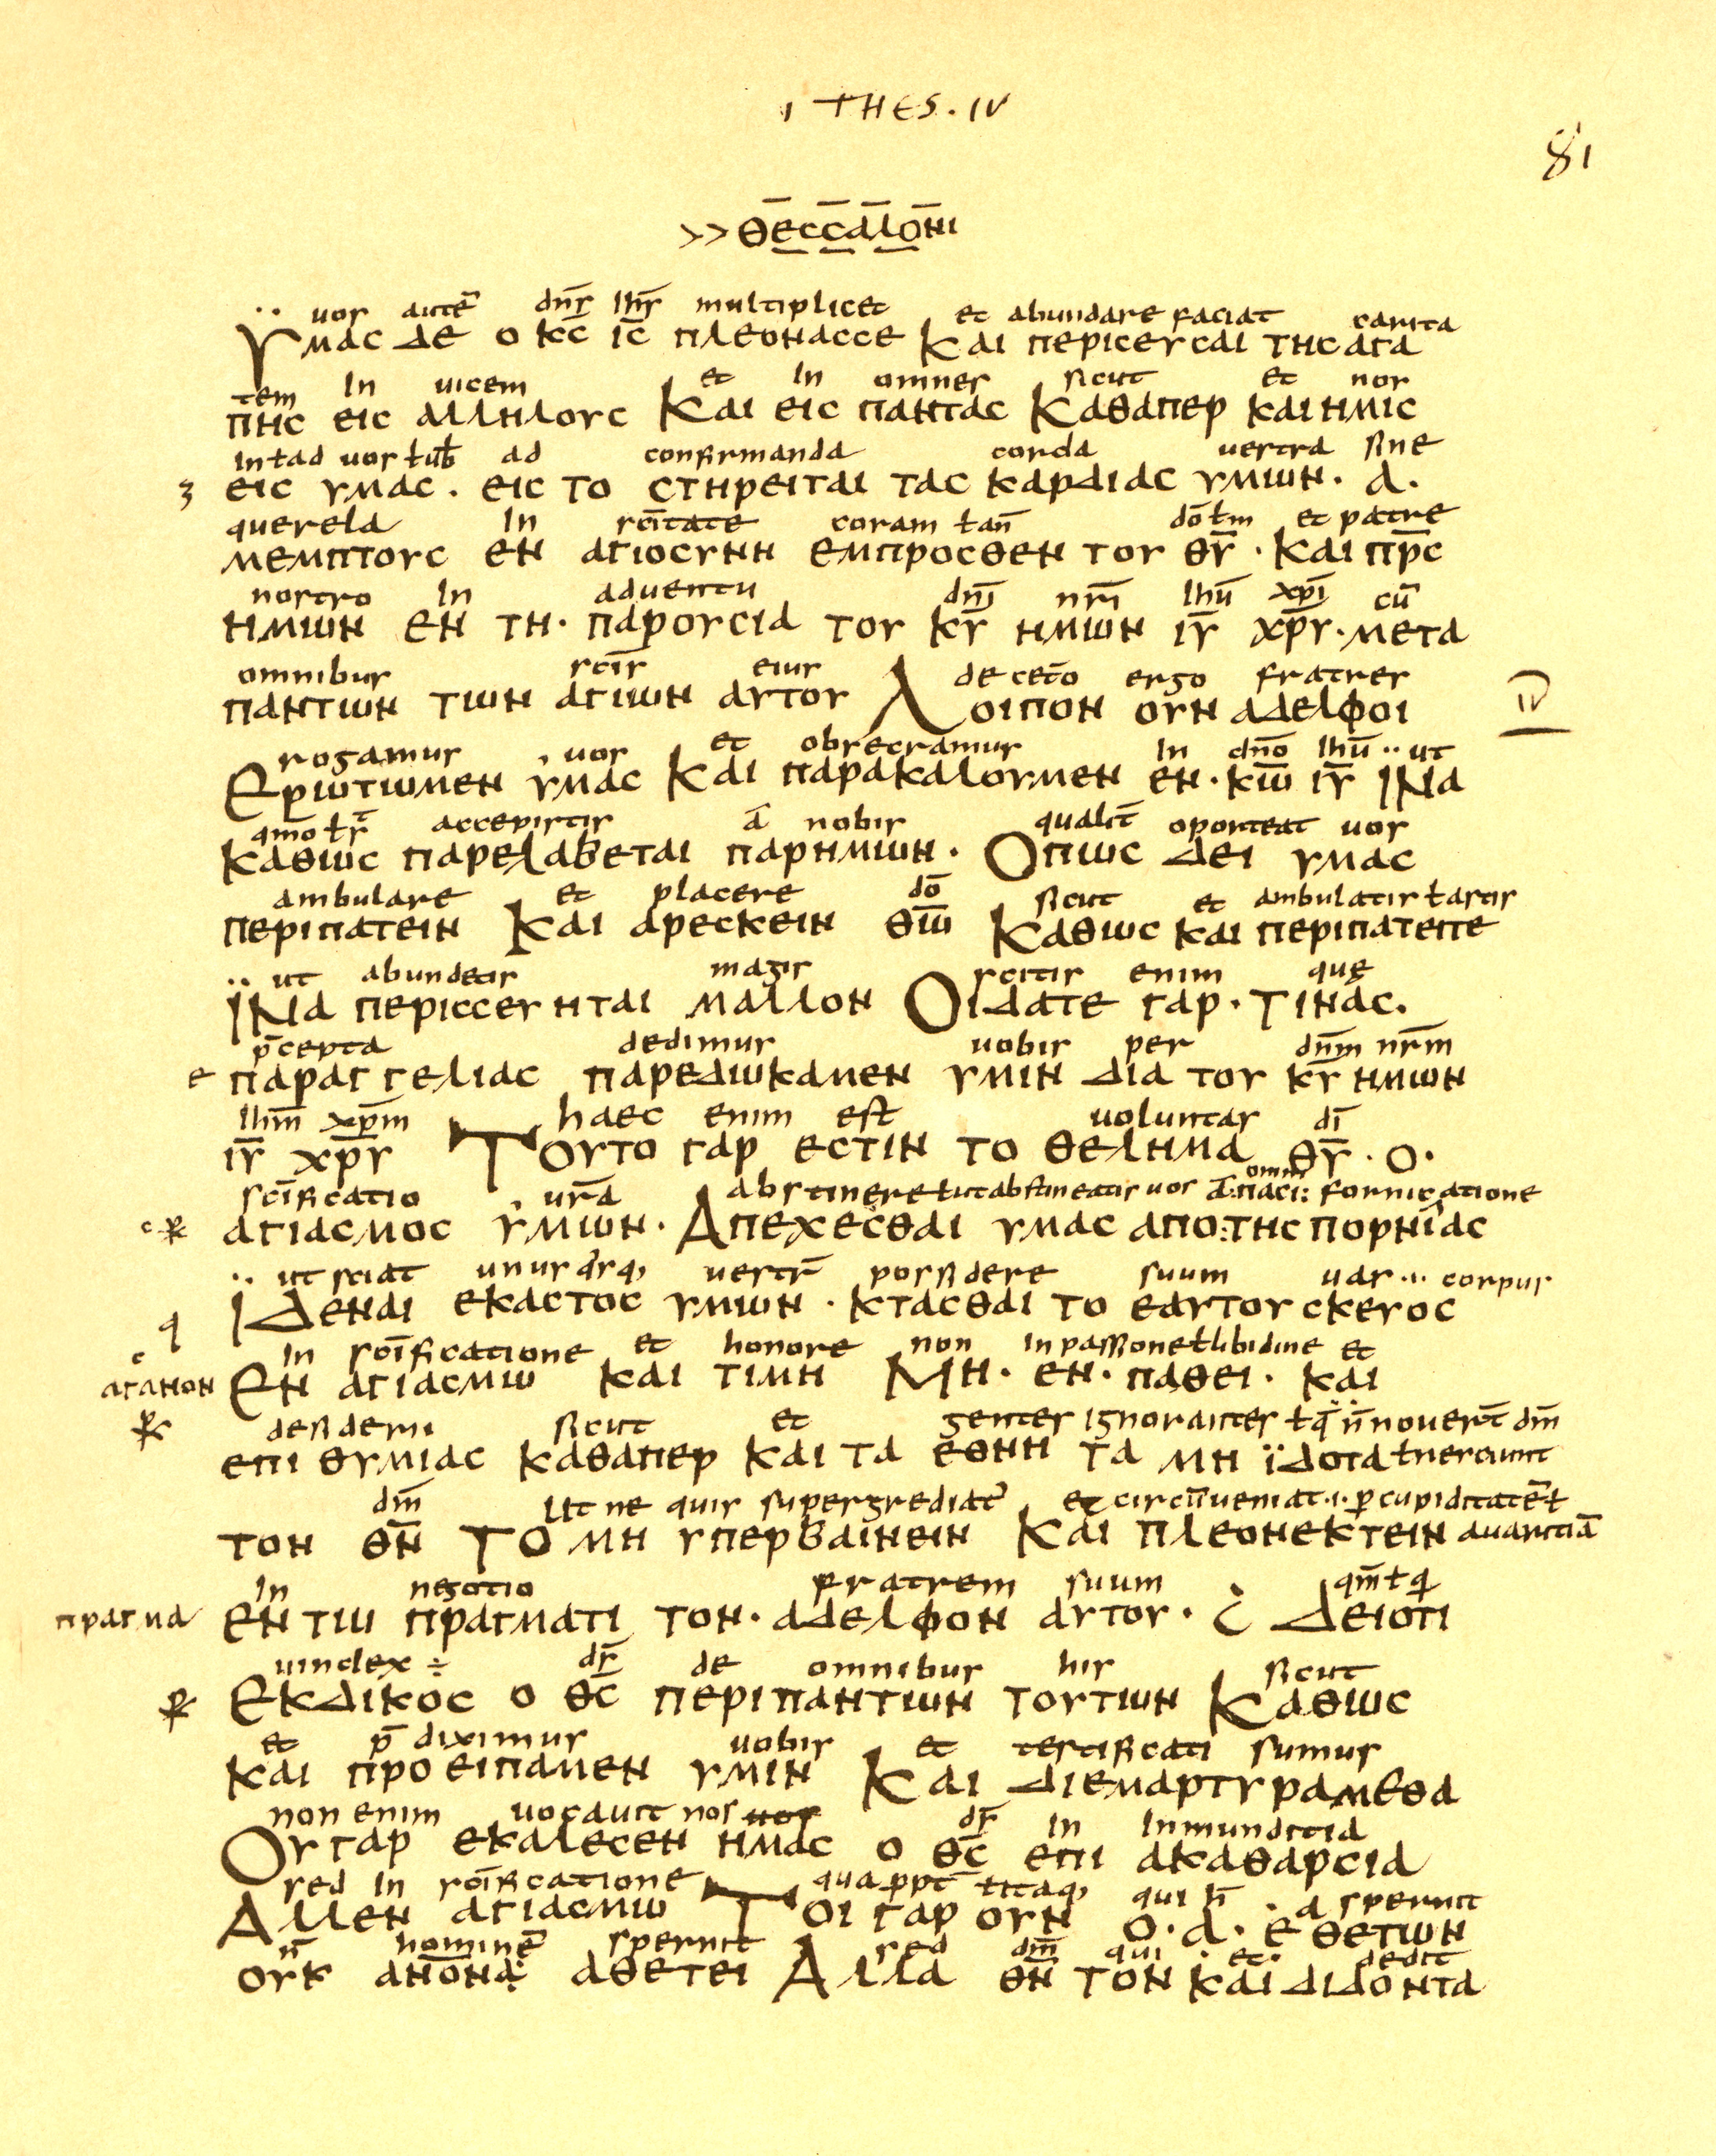 1 THES. IV
81
>> θεccaλοнι
uos autē dn̄s ihs̄ multiplicet et abundare faciat carita
Υμας δε ο κ̄c̄ ῑc̄ πλεοναccε Και περιcεγcαι τηc αγα
tem In uicem et In omnes sicut et nos
πηc ειc αλληλογc Και ειc πανταc Καθαπερ και ημιc
In ł ad uos ł uƀ ad confirmanda corda uestra sine
ειc υμαc . ειc το cτηρειται ταc καρδιαc υμων . α .
querela In sc̄itate coram ł an̄ dō ł m et patre
μεμπτογc εν αγιοcυνη εμπροcθεν του θ̄ῡ . και π̄ρ̄c̄
nostro In aduentu dn̄i nr̄i ihū xp̄i cū
ημων εν τη . παρουcια του κ̄ῡ ημων ῑῡ χ̄ρ̄ῡ . μετα
omnibus sc̄is eius de cetō ergo fratres
παντων των αγιων αυτου Λοιπον ουν αδελφοι
IV
rogamus uos et obsecramus In dn̄o ihū ut
Ερωτωμεν υμαc Και παρακαλουμεν εν . κ̄ω̄ ῑῡ ΙΝα
accepistis a nobis qualit̄ oporteat uos
καθωc παρελαβεται παρημων . Οπωc δει υμαc
ambulare et placere dō sicut et ambulatis ł astis
περιπατειν Και αρεcκειν θ̄ω̄ Καθωc και περιπατειτε
ut abundetis magis scitis enim quę
ΙΝα περιccευηται μαλλον Οιδατε γαρ . Τιναc .
p̄cepta dedimus uobis per dn̄m nr̄m
ε παραγγελιαc παρεδωκαμεν υμιν δια του κ̄ῡ ημων
ihm̄ xp̄m haec enim est uoluntas dī
ῑῡ χ̄ρ̄ῡ Τουτο γαρ εcτιν το θελημα θ̄ῡ . ο .
sc̄ificatio ur̄a abstinere ł ut abstineatis uos ā παcι: omni fornicatione
αγιαcμοc υμων . Απεχεcθαι υμαc απο:τηc πορνιαc
ut sciat unus qsq, uestr̄ possidere suum uas .. corpus
Ιδεναι εκαcτοc υμων . κταcθαι το εαυτου cκευοc
In sc̄ificatione et honore non In passione ł libidine et
αγανον Εν αγιαcμω και τιμη Μη . εν . παθει . και
desiderii sicut et gentes ignorantes ł q̄ n̄ nouert̄ dm̄
επιθυμιαc καθαπερ και τα εθνη τα μη ϊδοτα ł nesciunt
dm̄ Ut ne quis supergrediat̄ et circūueniat .. p̄ cupiditatē ł
τον θ̄ν̄ Το μη υπερβαινειν Και πλεονεκτειν auaritiā
In negotio fratrem suum qm̄ ł q
πραγμα εν τω πραγματι τον . αδελφον αυτου . ¿ Δειοτι
uindex ÷ ds̄ de omnibus his sicut
Εκδικοc ο θ̄c̄ περι παντων τουτων Καθωc
et p̄diximus uobis et testificati sumus
και προειπαμεν υμιν Και διεμαρτυραμεθα
non enim uocauit nos uos ds̄ In Inmunditia
Ου γαρ εκαλεcεν ημαc ο θ̄c̄ επι ακαθαρcια
sed In sc̄ificatione quappt̄ ł itaq, qui h̄ a spernit
Αλλεν αγιαcμω Τοιγαρουν ο . α . εθετων
n̄ hominē spernit sed dm̄ qui et dedit
ουκ ανονα: αθετει Αλλα θ̄ν̄ τον και διδοντα